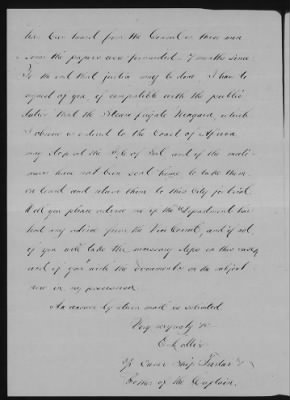 been heard from the Consul or these men
since the papers were forwarded - 7 months since
To the end that justice may be done, I have to
request of you, if compatible with the public
duties that the Steam frigate Niagara, which
I observe is ordered to the Coast of Africa
may stop at the and if the muti-
neers have not been sent home to take them
on board and return them to this City for trial.
Will you please inform me if the Department has
had any advice from the Vice Consul, and if not,
if you will take the necessary steps in this case,
and if you wish the documents on the subject
now in my possession.
An answer by return mail is solicited
Very respectfully
of Owner Ship
of the Captain.